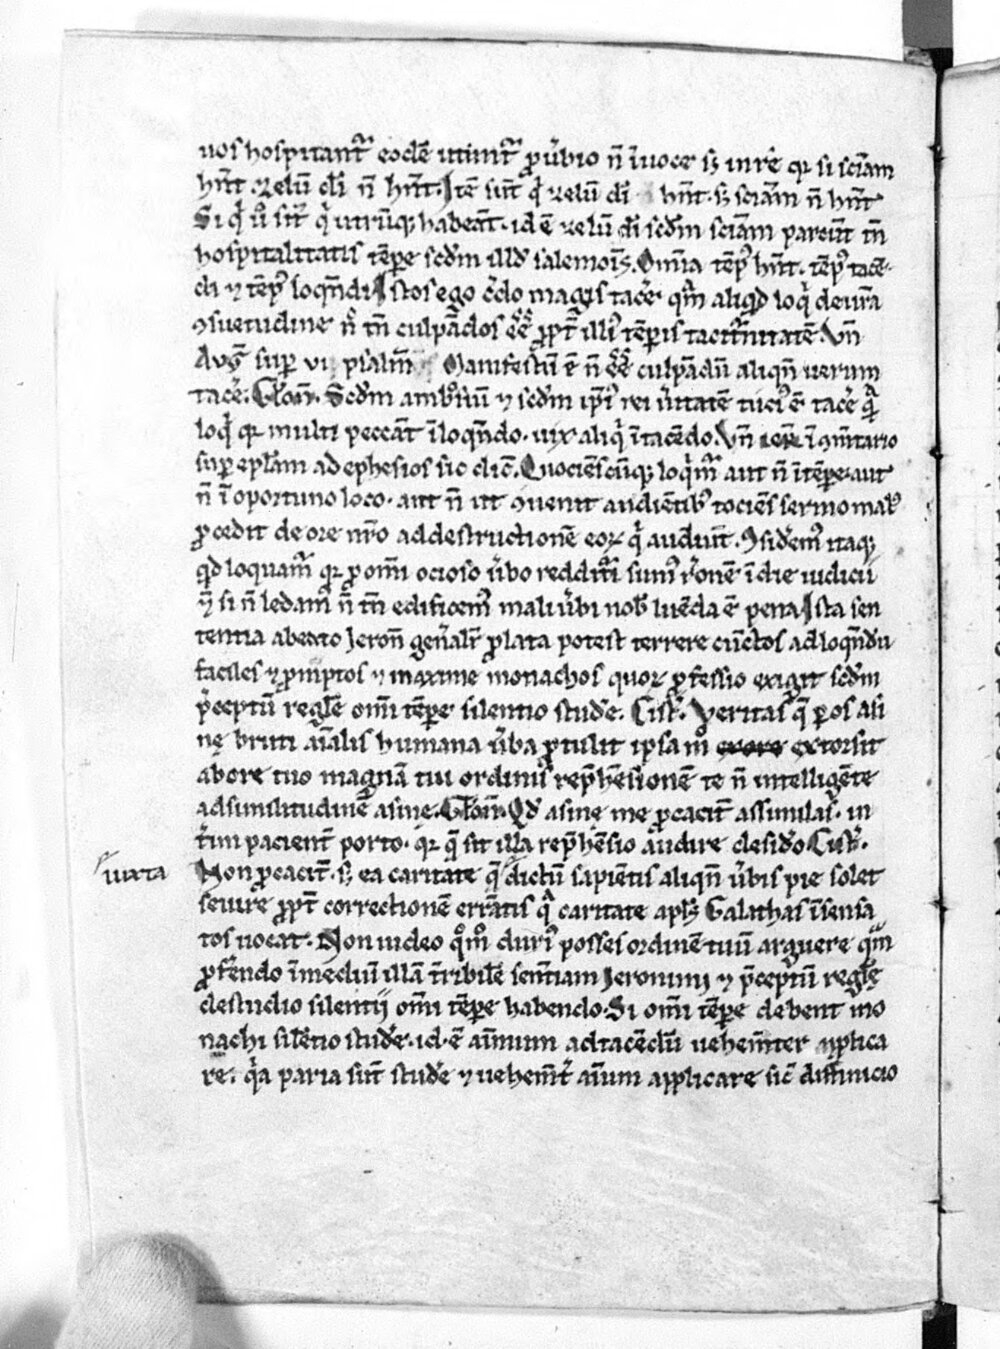 uos hospitant᷑ eodē utunt᷑ ꝓuͥbio n̄ ī uoce sꝫ in rē qꝛ si sciam
hn̄t zelū dī n̄ hn̄t. Itē sūt qͥ zelū dī hn̄t. sꝫ sciam n̄ hn̄t
Si qͥ uͦ sūt qͥ utrūqꝫ habeāt. id ē zelū dī scdm sciam parciūt tn̄
hospitalitatis tēꝑe scdm illd salemoīs. Omīa tēpꝰ hn̄t. tēpꝰ tacē
di ⁊ tēpꝰ loqn̄di Istos ego cͥdo magis tacēͬ qm̄ aliqd loqͥ de ura
ꝯsuetudine nͦ tn̄ culpādos eēͤ ꝓpt᷑ illiꝰ tēꝑis taciturnitatē. Vn̄
Aug᷑ suꝑ vi psalm̄ Manifestū ē n̄ eēͤ culpādū aliqn̄ uerum
tacēͬ. Clon̄. Scdm ambͦsiū ⁊ scdm ipiꝰ rei uͥitatē tuciꝰ ē tacēͬ qᷓ
loqͥ qꝛ multi peccāt ī loqn̄do. uix aliqͥ ī tacēdo. Vn̄ ier᷑ ī ꝯm̄tario
suꝑ epl̄am ad ephesios sic dic̄. Quociēscūqꝫ loqͥm᷑ aut n̄ ī tēꝑe. aut
n̄ ī oportuno loco. aut n̄ ut ꝯuenit audiētibꝰ tociēs sermo malꝰ
ꝓcedit de ore nr̄o ad destructionē eoꝝ qͥ audiūt. ꝯsidēmꝰ itaqꝫ
qd loquam᷑ qꝛ ꝓ omī ocioso uͥbo reddituri sumꝰ rͦonē ī die iudicii
⁊ si n̄ ledamꝰ n̄ tn̄ edificemꝰ mali uͥbi nob̄ luēda ē pena Ista sen
tentia a beato Jeron̄ genͥalit᷑ ꝓlata potest terrere cūctos ad loqn̄dū
faciles ⁊ ꝓmptos ⁊ maxime monachos quoꝝ ꝓfessio exigit scdm
pͥceptū regl̄e omī tēꝑe silentio studēͬ. Cist᷑. Veritas q̄ ꝑ os asi
nę bruti aīalis humana uͥba ꝓtulit ipsa mͦ extorsit
ab ore tuo magnā tui ordinis rep̄hēsionē te n̄ intelligēte
ad similitudinē asine. Clon̄. Qd asinę me ꝓcacit᷑ assimilas. in
tͥim pacient᷑ porto. qꝛ q̄ sit illa rep̄hēsio audire desidͦo Cist᷑.
Non ꝓcacit᷑. sꝫ ea caritate q̄ dictū sapiētis aliqn̄ uͥbis pie solet
iuxta
seuire ꝓpt᷑ correctionē errātis qᷓ caritate apl̄s Galathas īsensa
tos uocat. Non uideo qͦmͦ duriꝰ posses ordinē tuū arguere qm̄
ꝓferendo ī mediū illā tͥribilē sent̄iam Jeronimi ⁊ p̄ceptū regl̄ę
de studio silentii omī tēꝑe habendo. Si omī tēꝑe debent mo
nachi silētio studēͬ. id ē aīmum ad tacēdū uehem̄ter applica
re. qͥa paria sūt studēͬ ⁊ uehem̄t᷑ aīum applicare sic̄ diffinicio